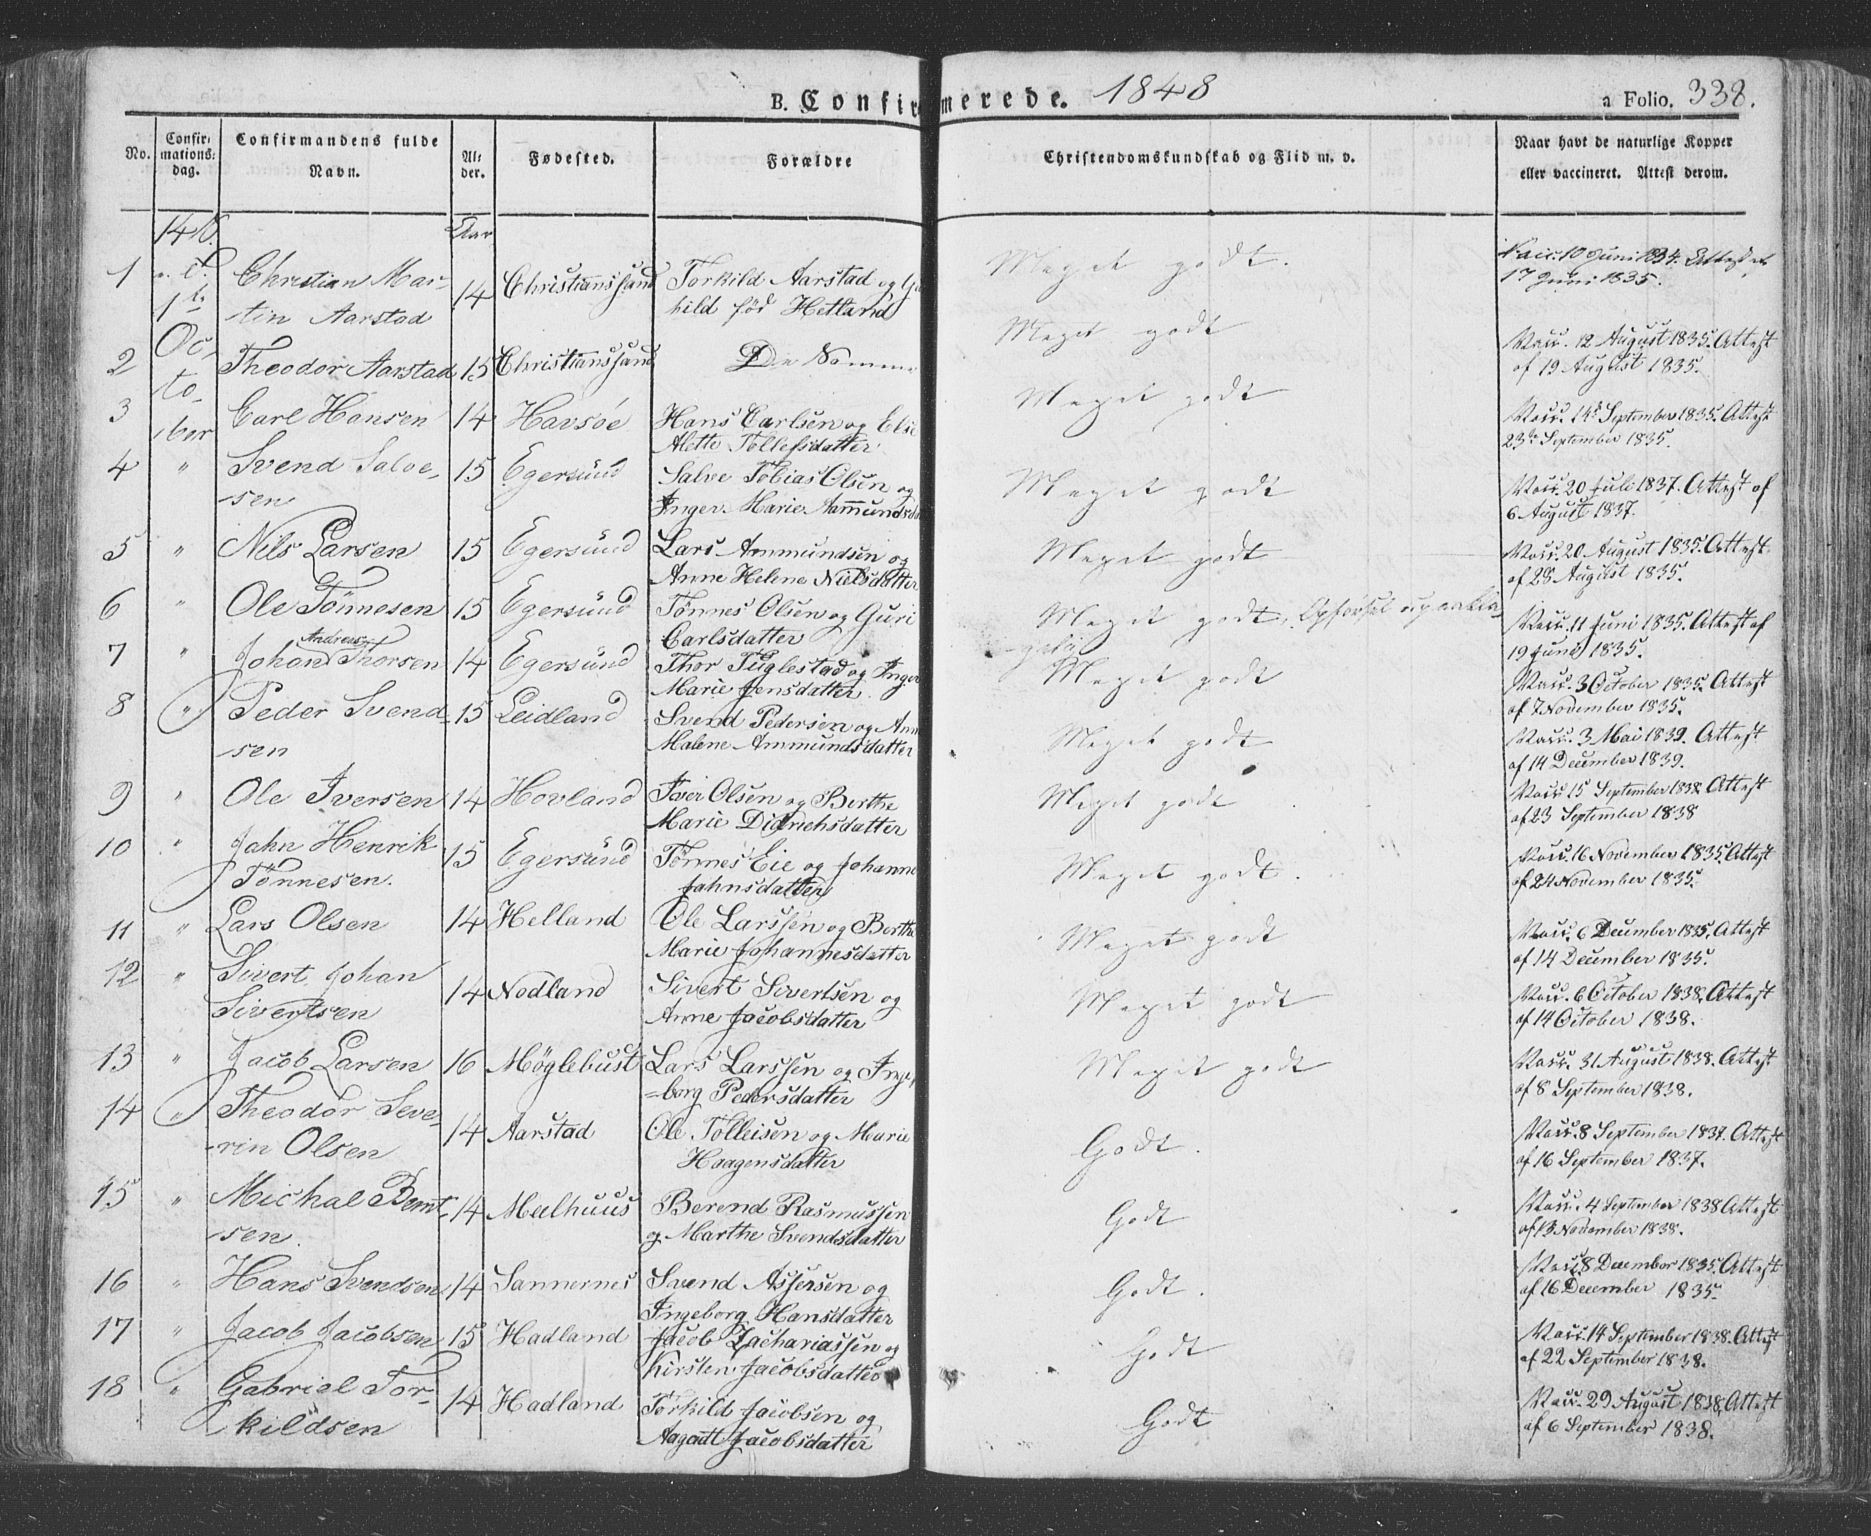 B. Confirmerede. 1848 a Folio. 338.
No. Confirmations-dag. Confirmandens fulde Navn. Alder. Fødested. Forældre Christendomskundskab og Flid m. v. Naar havt de naturlige Kopper eller vaccineret. Attest derom.
Aar
1 Christian Mar- 14 Christianssand Torkild Aarstad og Meget godt. Vacc. 10 Juni 1834. Attest
tin Aarstad hild fød Hetland 17 Juni 1835.
1ste Octo-ber
2 Theodor Aarstad 15 Christianssand De Samme Meget godt Vacc. 12 August 1835. Attest
af 19 August 1835.
3 Carl Hansen 14 Havsøe Hans Carlsen og Else Meget godt Vacc. 14de September 1835. Attest
Alette Tollefsdatter 23de September 1835.
4 " Svend Salve- 15 Egersund Salve Tobias Olsen og Meget godt Vacc. 20 Juli 1837. Attest af
sen Inger Marie Ammundsda 6 August 1837.
5 " Nils Larsen 15 Egersund Lars Ammundsen og Meget godt Vacc. 20 August 1835. Attest
Anne Helene Nielsdatter af 28 August 1835.
6 " Ole Tønnesen 15 Egersund Tønnes Olsen og Guri Meget godt, Opførsel upaakla-
Carlsdatter gelig Vacc. 11 Juni 1835. Attest af
19 Juni 1835.
7 " Johan Andreas Thorsen 14 Egersund Thor Tuglestad og Inger Meget godt Vacc. 3 October 1835. Attest
Marie Jensdatter af 7 November 1835.
8 " Peder Svend- 15 Leidland Svend Pedersen og Ann Meget godt Vacc. 3 Mai 1839. Attest
sen Malene Ammundsdatter af 14 December 1839.
9 " Ole Iversen 14 Hovland Iver Olsen og Berthe Meget godt Vacc. 15 September 1838 Attest
Marie Didrichsdatter af 23 September 1838
10 " Jahn Henrik 15 Egersund Tønnes Eie og Johanne Meget godt. Vacc. 16 November 1835 Attest
Tønnesen. Jahnsdatter af 24 November 1835.
11 " Lars Olsen 14 Helland Ole Larssen og Berthe Meget godt Vacc. 6 December 1835. Attest
Marie Johannesdatter af 14 December 1835.
12 " Sivert Johan 14 Nodland Sivert Sivertsen og Meget godt Vacc. 6 October 1838. Attest
Sivertsen Anne Jacobsdatter af 14 October 1838.
13 " Jacob Larsen 16 Møglebust Lars Larssen og Inge- Meget godt Vacc. 31 August 1838. Attest
borg Pedersdatter af 8 September 1838.
14 " Theodor Seve- 14 Aarstad Ole Tolleisen og Marie Godt. Vacc. 8 September 1837. Attest
rin Olsen Haagensdatter af 16 September 1837.
15 " Michal Bernt- 14 Meelhuus Berend Rasmussen Godt Vacc. 4 September 1838 Attest
sen. og Marthe Svendsdatter af 13 November 1838.
16 " Hans Svendsen 14 Sannernes Svend Assersen og Godt. Vacc. 8 December 1835. Attest
Ingeborg Hansdatter af 16 December 1835.
17 " Jacob Jacobsen 15 Hadland Jacob Zachariassen og Godt Vacc. 14 September 1838. Attest
Kirsten Jacobsdatter af 22 September 1838.
18 " Gabriel Tor- 14 Hadland Torkild Jacobsen og Godt Vacc. 29 August 1838. Attest
kildsen Jacobsdatter af 6 September 1838.